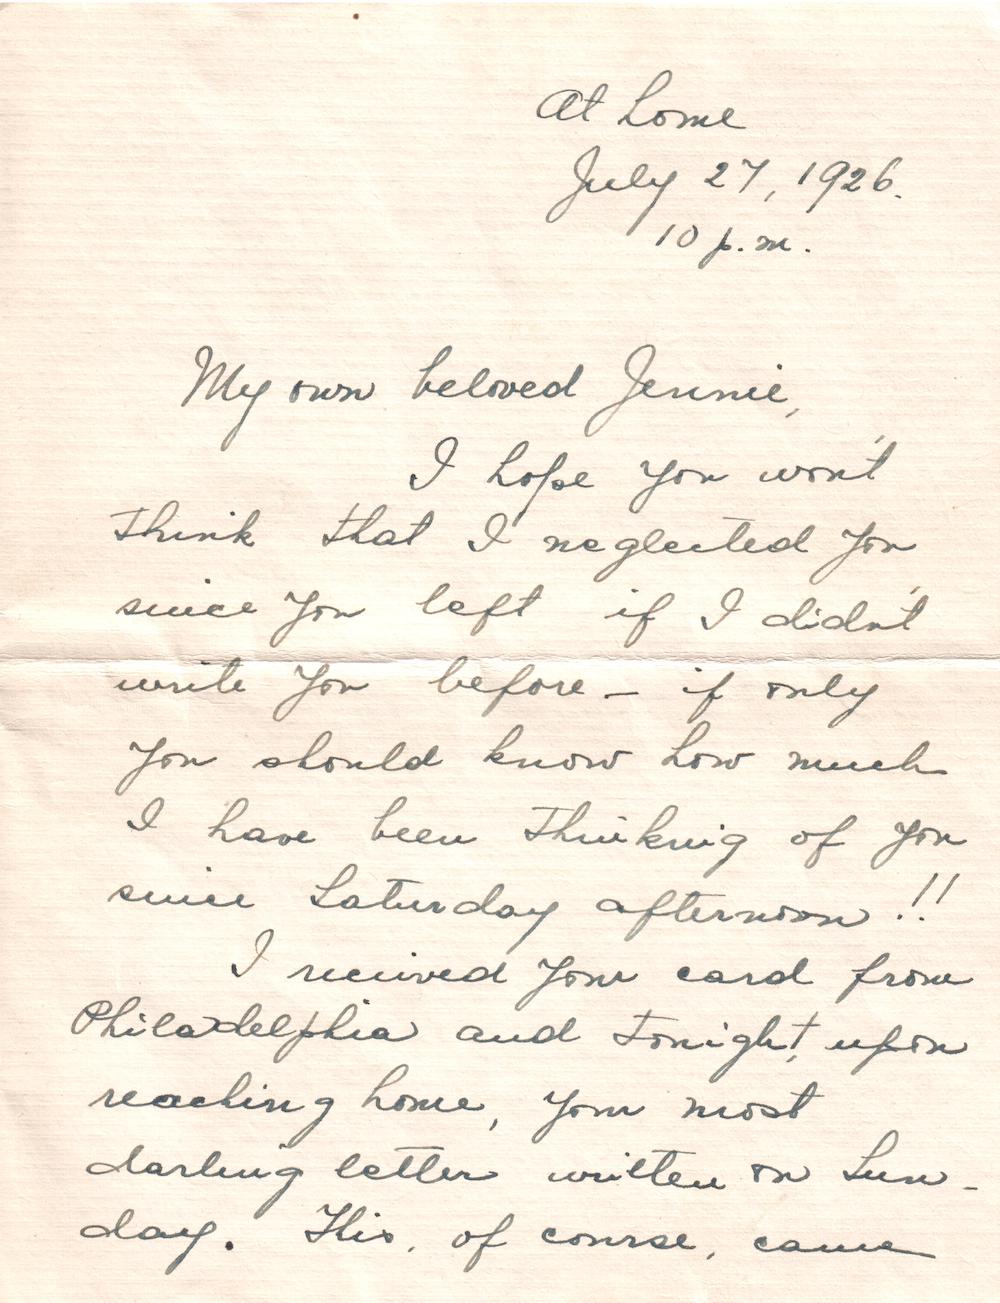 At home
July 27, 1926.
10 p.m.
My own beloved Jennie,
I hope you won't
think that I neglected you
since you left if I didn't
write you before — if only
you should know how much
I have been thinking of you
since Saturday afternoon !!
I received your card from
Philadelphia and tonight, upon
reaching home, your most
darling letter written on Sun-
day. This, of course, came